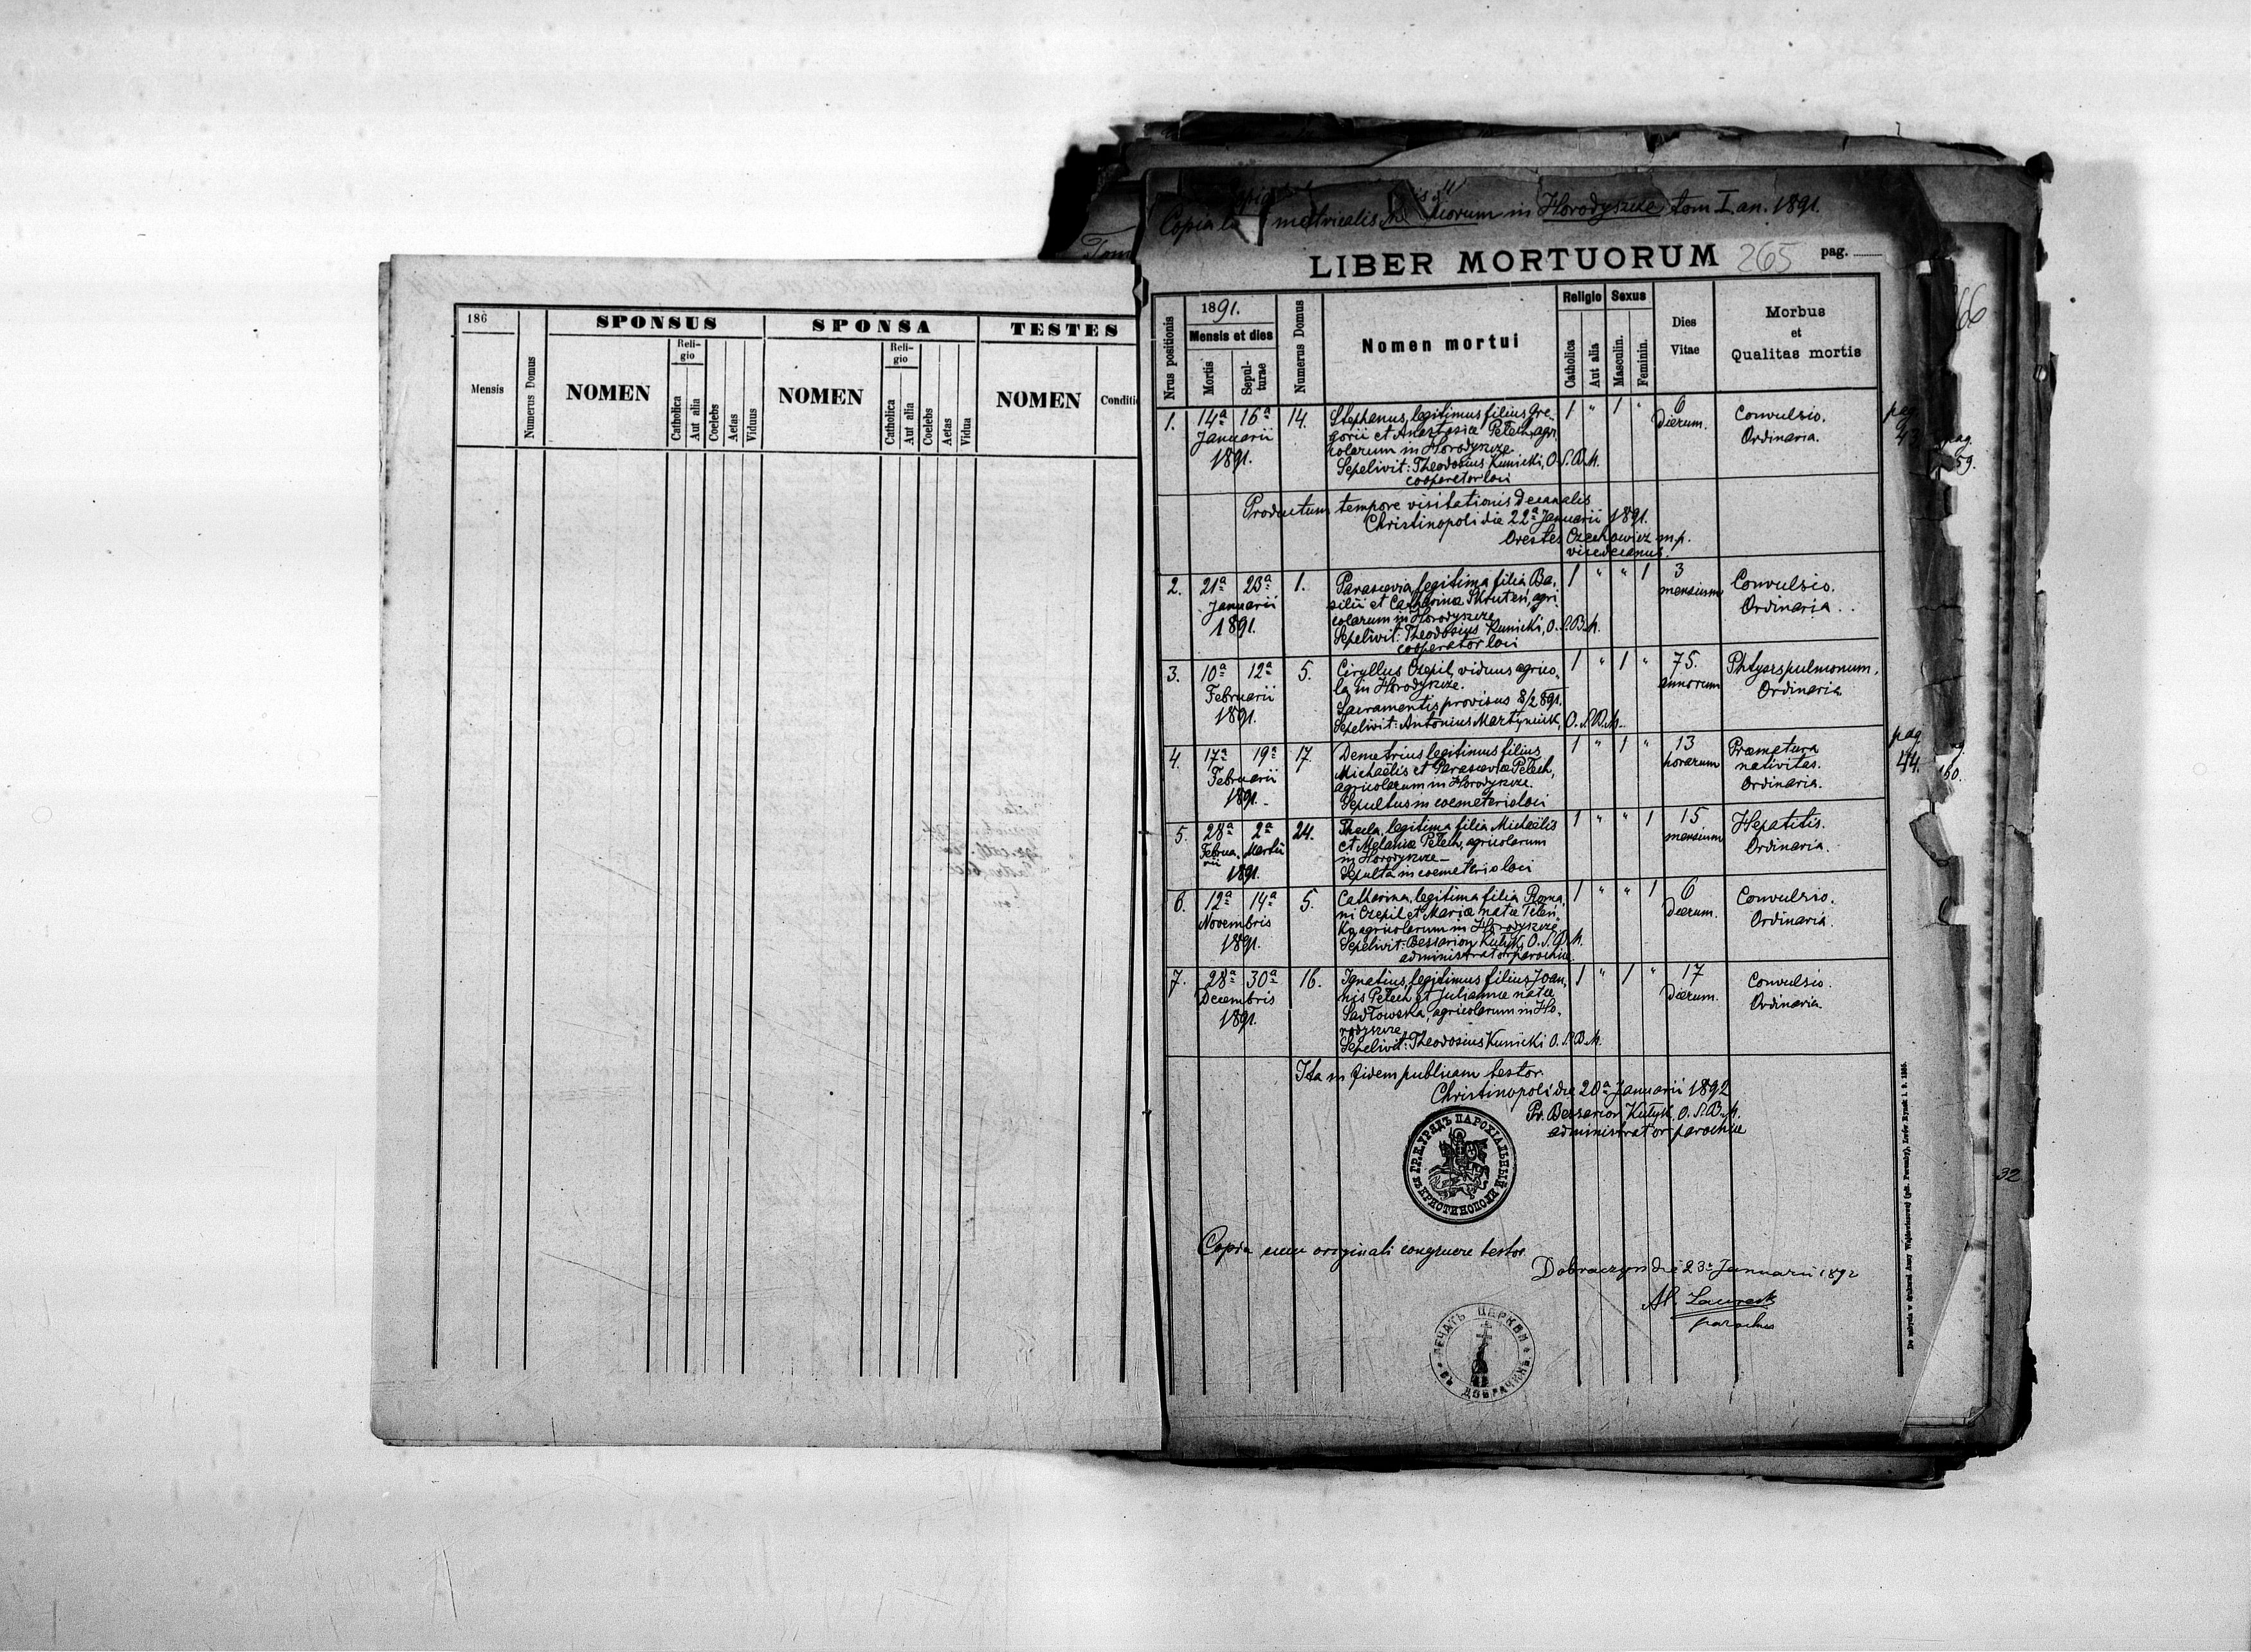 186
SPONSUS
SPONSA
TESTES
Mensis
Numerus Domus
NOMEN
Reli-
gio
Catholica
Aut alia
Coelebs
Aetas
Viduus
NOMEN
Reli-
gio
Catholica
Aut alia
Coelebs
Aetas
Vidua
NOMEN
Conditio
Tom
Copia metricalis in Horodyszcze tom I. an. 1891.
LIBER MORTUORUM 265 pag.
Nrus positionis
1891.
Mensis et dies
Mortis
Sepul-
turae
Numerus Domus
Nomen mortui
Religio
Catholica
Aut alia
Sexus
Masculin.
Feminin.
Dies
Vitae
Morbus
et
Qualitas mortis
1. 14a 16a 14. Stephanus, legitimus filius Gre- 1 " 1 " 6 Convulsio.
Januarii gorii et Anastasiæ Petech, agri- dierum. Ordinaria.
1891. colarum in Horodyszcze
Sepelivit: Theodosius Kunicki, O.S.B.M.
cooperator loci
pag.
43
pag.
59.
Productum tempore visitationis decanalis
Christinopoli die 22a Januarii 1891.
Orestes Czechowicz m.p.
vicedecanus.
2. 21a 23a 1. Parascevia, legitima filia Ba- 1 " " 1 3 Convulsio.
Januarii silii et Catharinæ Skruteń, agri- mensium Ordinaria.
1891. colarum in Horodyszcze
Sepelivit: Theodosius Kunicki, O.S.B.M.
cooperator loci
3. 10a 12a 5. Cyrillus Czepil, viduus agrico- 1 " 1 " 75. Phtysis pulmonum.
Februarii la in Horodyszcze. annorum Ordinaria
1891. Sacramentis provisus 8/2 891.
Sepelivit: Antonius Martyniuk, O.S.B.M.
4. 17a 19a 17. Demetrius legitimus filius 1 " 1 " 13 Præmatura
Februarii Michaëlis et Parasceviæ Petech, horarum nativitas.
1891. agricolarum in Horodyszcze. Ordinaria.
Sepultus in coemeterio loci
pag
44.
60.
5. 28a 2a 24. Thecla, legitima filia Michaëlis 1 " " 1 15 Hepatitis.
Februa- Martii et Melaniæ Petech, agricolarum mensium Ordinaria.
rii in Horodyszcze
1891. Sepulta in coemeterio loci
6. 12a 14a 5. Catharina, legitima filia Roma- 1 " " 1 6 Convulsio.
Novembris ni Czepil et Mariæ natæ dierum. Ordinaria.
1891. agricolarum in Horodyszcze
Sepelivit: Bessarion Kutyk, O.S.B.M.
administrator parochiæ
7. 28a 30a 16. Ignatius, legitimus filius Joan- 1 " 1 " 17 Convulsio.
Decembris nis Petech et Juliannæ natæ dierum. Ordinaria
1891. Sadłowska, agricolarum in Ho-
rodyszcze
Sepelivit: Theodosius Kunicki O.S.B.M.
Ita in fidem publicam testor.
Christinopoli die 20a Januarii 1892
Pr. Bessarion Kutyk, O.S.B.M.
administrator parochiæ
ГР. К. УРЯДЪ ПАРОХІАЛЬНЫЙ
въ КРИСТИНОПОЛИ
32
Copia cum originali congruere testor.
Dobraczyn die 23a Januarii 1892
parochus
ПЕЧАТЬ ЦЕРКВИ
ВЪ ДОБРАЧИНѢ